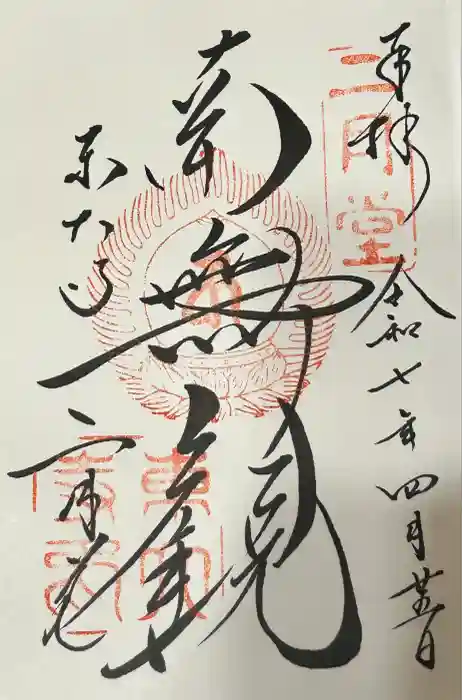 奉拝 令和七年四月廿五日
二月堂
南無觀
東大寺
二月堂